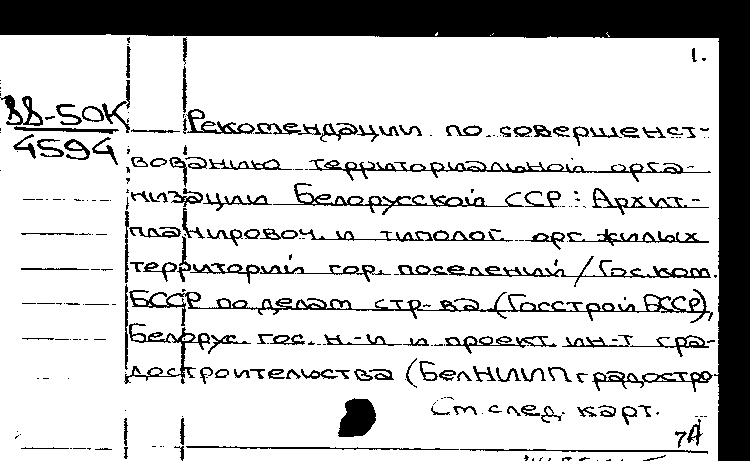 1.
88-50К
4594
Рекомендации по совершенст-
вованию территориальной орга-
низации Белорусской ССР: Архит.-
планировоч. и типолог. орг. жилых
территорий гор. поселений / Гос. ком.
БССР по делам стр-ва (Госстрой БССР),
Белорус. гос. н.-и и проект. ин-т гра-
достроительства (БелНИИПградостро-
См. след. карт.
7А